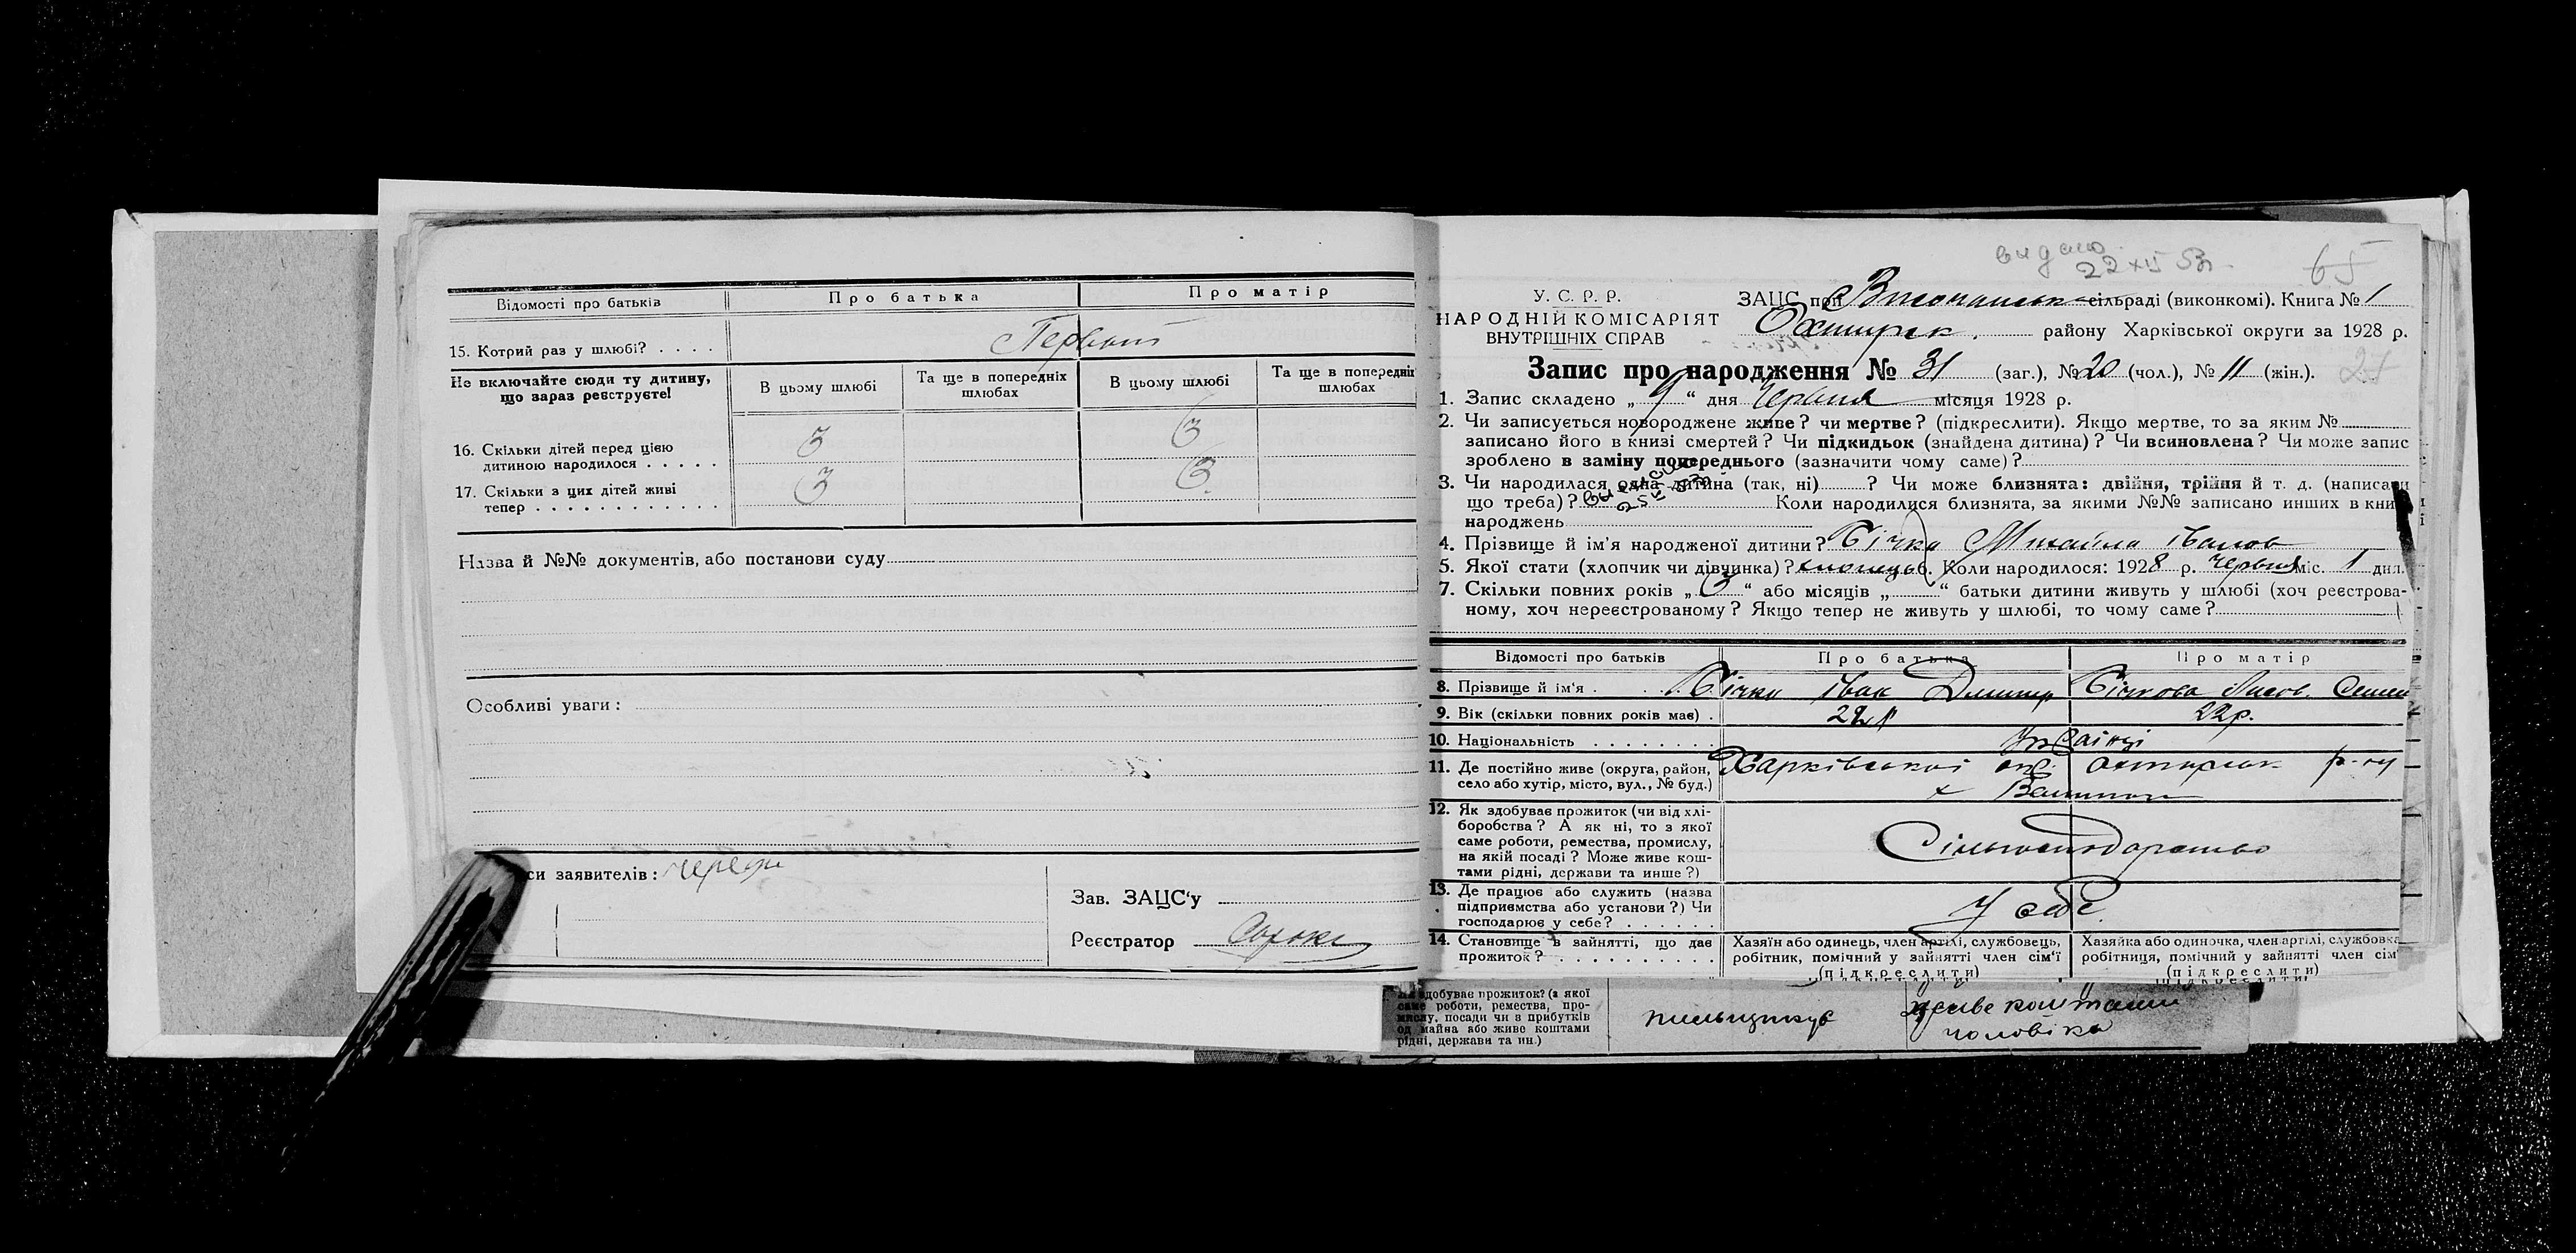 Відомості про батьків
Про батька
Про матір
15. Котрий раз у шлюбі? . . . .
Первый
Не включайте сюди ту дитину,
що зараз реєструєте!
В цьому шлюбі
Та ще в попередніх
шлюбах
В цьому шлюбі
Та ще в попередніх
шлюбах
16. Скільки дітей перед цією
дитиною народилося . . . . .
3
3
17. Скільки з цих дітей живі
тепер . . . . . . . . . . . .
3
3
Назва й №№ документів, або постанови суду
Особливі уваги:
си заявителів:
Зав. ЗАЦС'у
Реєстратор Сорока
видано
22 XII 53
65
У. С. Р. Р.
НАРОДНІЙ КОМІСАРІЯТ
ВНУТРІШНІХ СПРАВ
ЗАЦС при сільраді (виконкомі). Книга № 1
Охтирск. району Харківської округи за 1928 р.
Запис про народження № 31 (заг.), № 20 (чол.), № 11 (жін.).
1. Запис складено „ 9 “ дня Червня місяця 1928 р.
2. Чи записується новороджене живе? чи мертве? (підкреслити). Якщо мертве, то за яким №
записано його в книзі смертей? Чи підкидьок (знайдена дитина)? Чи всиновлена? Чи може запис
зроблено в заміну попереднього (зазначити чому саме)?
3. Чи народилася одна дитина (так, ні) ? Чи може близнята: двійня, трійня й т. д. (написати
що треба)? Коли народилися близнята, за якими №№ записано инших в книзі
народжень
4. Прізвище й ім'я народженої дитини? Січка Михайло Іванов
5. Якої статі (хлопчик чи дівчинка)? хлопець 6. Коли народилося: 1928 р. червня міс. 1 дня.
7. Скільки повних років „ 3 “ або місяців „ “ батьки дитини живуть у шлюбі (хоч реєстрова-
ному, хоч нереєстрованому? Якщо тепер не живуть у шлюбі, то чому саме?
Відомості про батьків
Про батька
Про матір
8. Прізвище й ім'я . . . Січка Іван Дмитр
Січкова Семен
9. Вік (скільки повних років має) .
22 р
22 р.
10. Національність . . . . . . . .
Українці
11. Де постійно живе (округа, район,
село або хутір, місто, вул., № буд.)
Харківської окр. Охтирськ р-ну
х
12. Як здобуває прожиток (чи від хлі-
боробства? А як ні, то з якої
саме роботи, ремества, промислу,
на якій посаді? Може живе кош-
тами рідні, держави та инше?)
Сільгосподарство
13. Де працює або служить (назва
підприємства або установи?) Чи
господарює у себе? . . . . . .
У себе
14. Становище в зайнятті, що дає
прожиток? . . . . . . . . . .
Хазяїн або одинець, член артілі, службовець,
робітник, помічний у зайнятті член сім'ї
(підкреслити)
Хазяйка або одиночка, член артілі, службовка
робітниця, помічний у зайнятті член сім'
(підкреслити)
здобуває прожиток? (з якої
саме роботи, ремества, про-
мислу, посади чи з прибутків
од майна або живе коштами
рідні, держави та ин.)
живе коштами
чоловіка